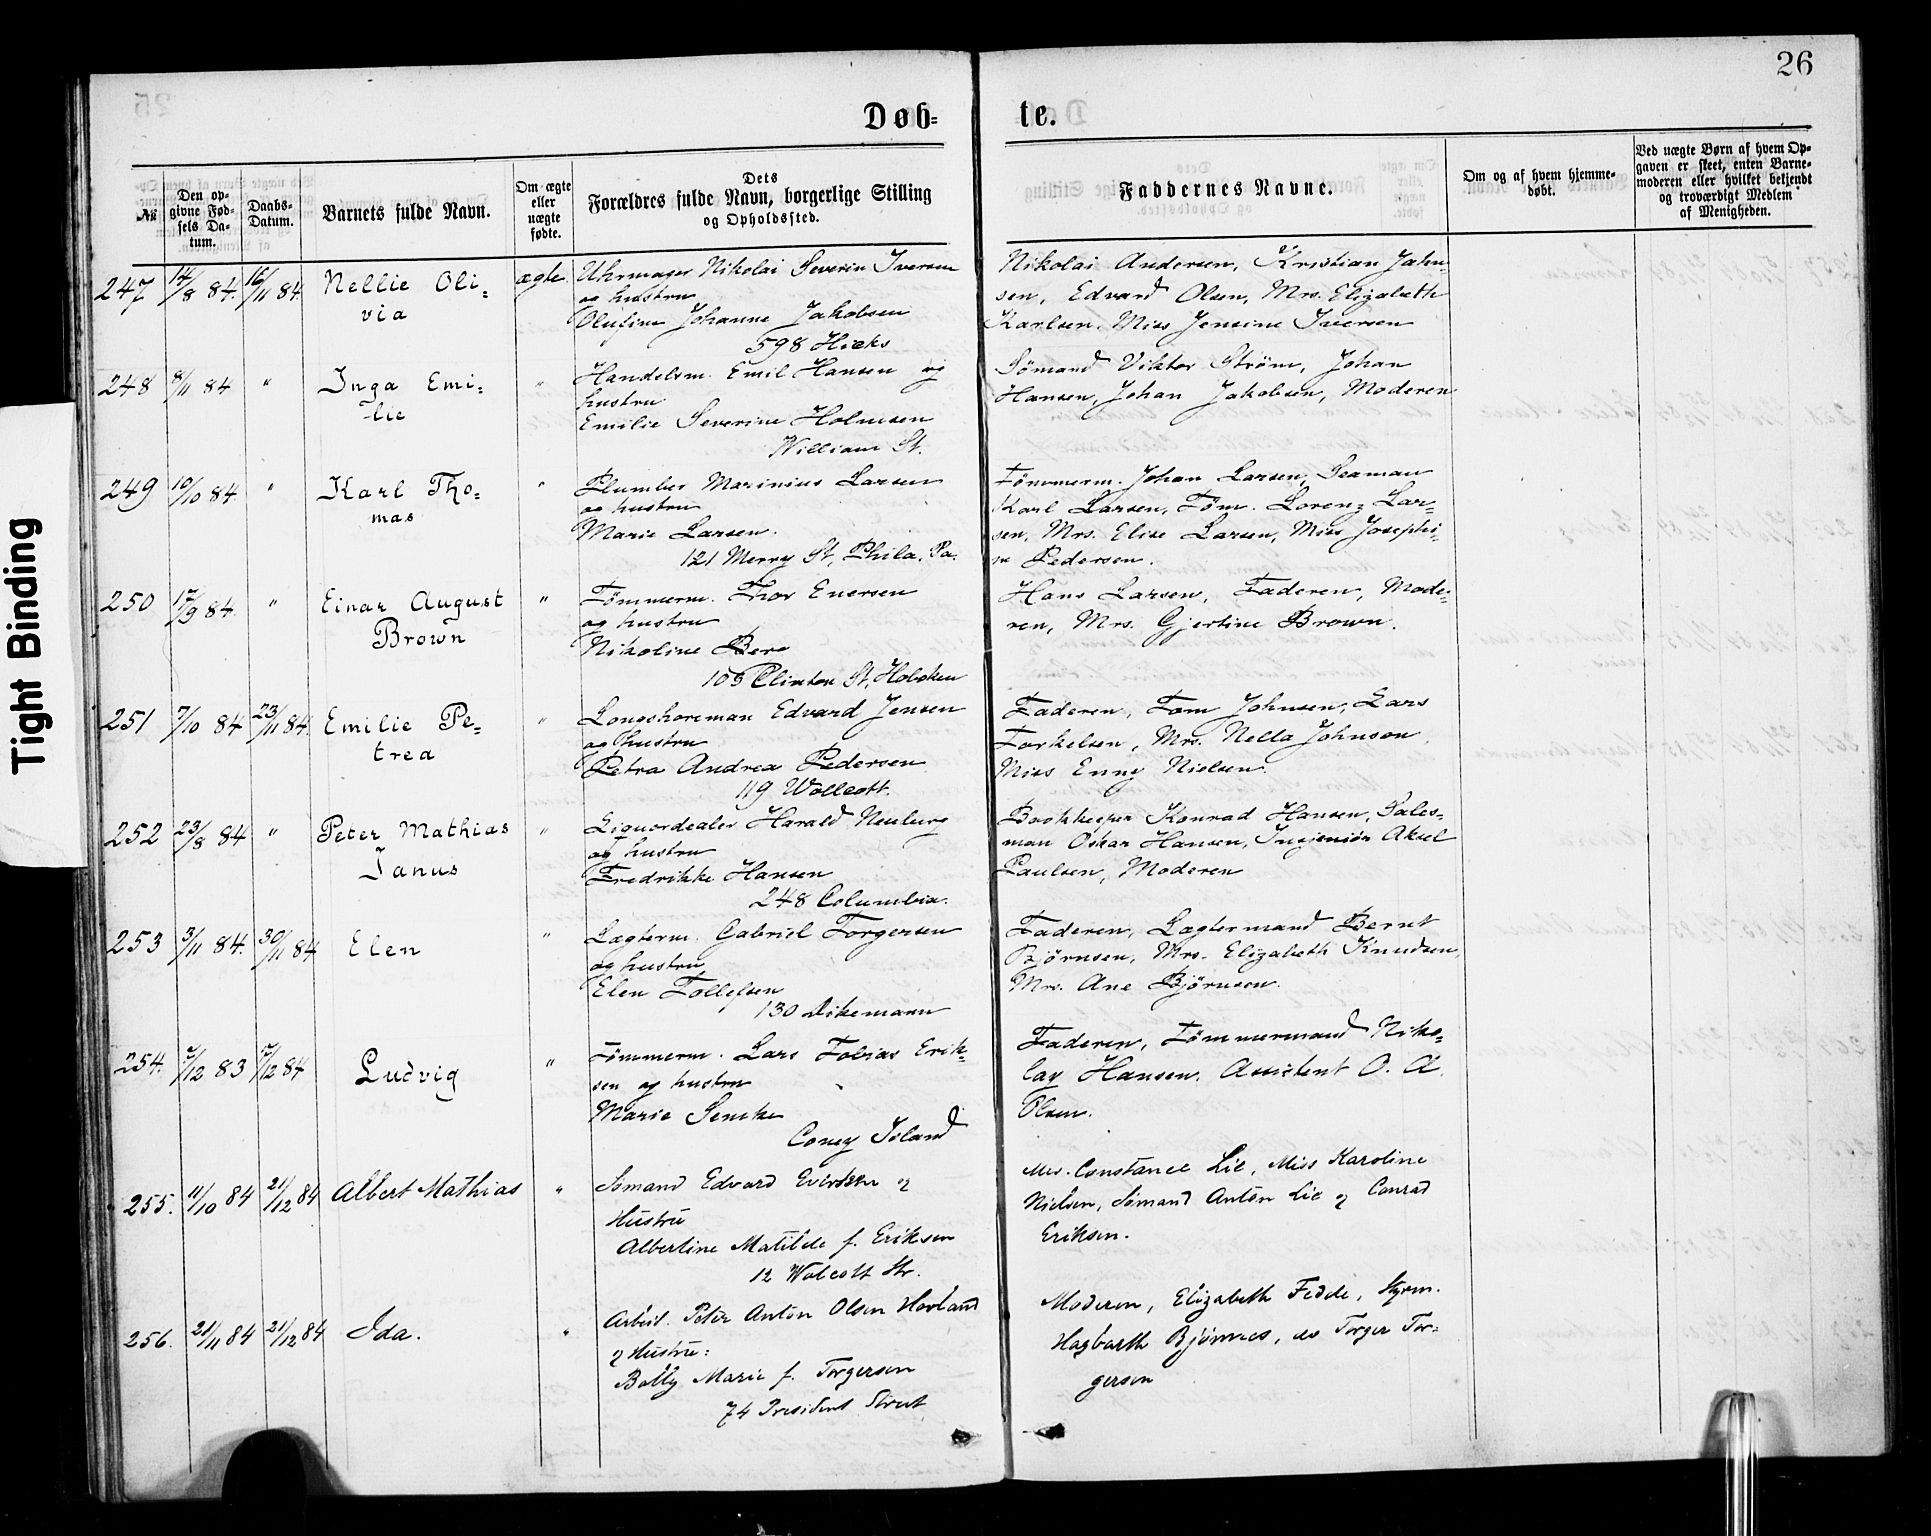 26
Døb-
te.
№
Den op-
givne Fød-
sels Da-
tum.
Daabs-
Datum.
Barnets fulde Navn.
Om ægte
eller
uægte
fødte.
Dets
Forældres fulde Navn, borgerlige Stilling
og Opholdssted.
Faddernes Navne.
Om og af hvem hjemme-
døbt.
Ved uægte Børn af hvem Op-
gaven er skeet, enten Barne-
moderen eller hvilket bekjendt
og troværdigt Medlem
af Menigheden.
247 14/8 84. 16/11 84. Nellie Oli-
via
ægte
Uhrmager Nikolai Severin Iversen
og hustru
Olufine Johanne Jakobsen
598 Hicks
Nikolai Andersen, Kristian Jahn-
sen, Edvard Olsen, Mrs. Elizabeth
Karlsen, Miss Jensine Iversen
248 8/11 84 " Inga Emi-
lie
"
Handelsm. Emil Hansen og
hustru
Emilie Severine Holmsen
William St.
Sømand Viktor Strøm, Johan
Hansen, Johan Jakobsen, Moderen
249 10/10 84 " Karl Tho-
mas
"
Plumber Marinius Larsen
og hustru
Marie Larsen.
121 Merry St, Phila. Pa.
Tømmerm. Johan Larsen, Seaman
Karl Larsen, Tøm. Lorenz Lar-
sen, Mrs. Elise Larsen, Miss Josephi-
ne Pedersen.
250 17/9 84. " Einar August
Brown
"
Tømmerm. Thor Enersen
og hustru
Nikoline Berg
105 Clinton St, Hoboken
Hans Larsen, Faderen, Mode-
ren, Mrs. Gjertine Brown.
251 7/10 84 23/11 84. Emilie Pe-
trea
"
Longshoreman Edvard Jensen
og hustru
Petra Andrea Pedersen
119 Wollcott.
Faderen, Tom Johnsen, Lars
Torkelsen, Mrs. Nella Johnson,
Miss Enny Nielsen.
252 23/8 84 " Peter Mathias
Janus
"
Liquordealer Harald Neuburg
og hustru
Fredrikke Hansen
248 Columbia.
Bookkeeper Konrad Hansen, Sales-
man Oskar Hansen, Ingeniør Aksel
Paulsen, Moderen
253 3/11 84. 30/11 84 Elen
"
Lægterm. Gabriel Torgersen
og hustru
Elen Tollefsen
130 Dikemann
Faderen, Lægtermand Bernt
Bjørnsen, Mrs. Elizabeth Knudsen,
Mrs. Ane Bjørnsen.
254. 7/12 83 7/12 84 Ludvig
"
Tømmerm. Lars Tobias Erik-
sen og hustru
Marie Semke
Coney Island
Faderen, Tømmermand Niko-
lay Hansen, Assistent O. A.
Olsen.
255. 11/10 84 21/12 84 Albert Mathias
"
Sømand Edvard Evertsen og
Hustru
Albertine Matilde f. Eriksen
12 Wolcott Str.
Mrs. Constance Lie, Miss Karoline
Nielsen, Sømand Anton Lie og Conrad
Eriksen.
256. 21/11 84 21/12 84 Ida.
"
Arbeid. Peter Anton Olsen Hovland
og Hustru:
Bolly Marie f. Torgersen
74 President Street
Moderen, Elizabeth Fedde, Styrm.
Hagbarth Bjønnes, do Torger Tor-
gersen
Tight Binding